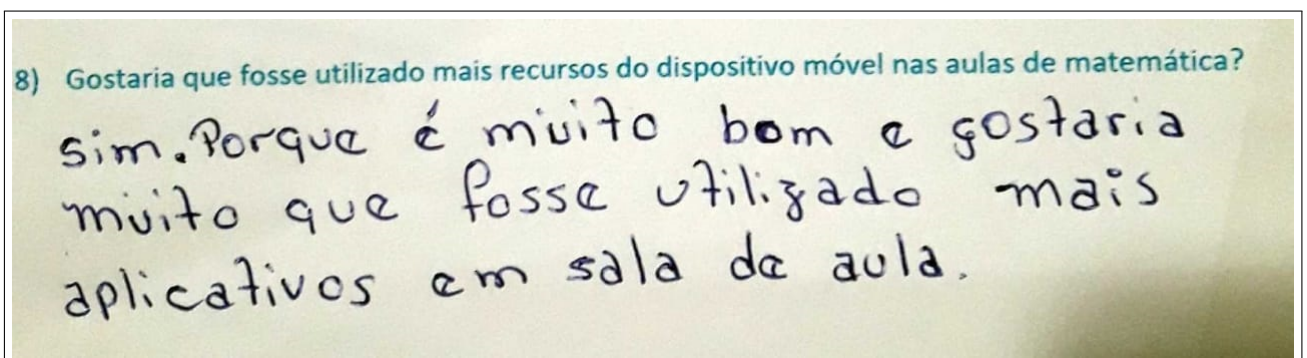 8) Gostaria que fosse utilizado mais recursos do dispositivo móvel nas aulas de matemática?
sim. Porque é muito bom e gostaria
muito que fosse utilizado mais
aplicativos em sala de aula.